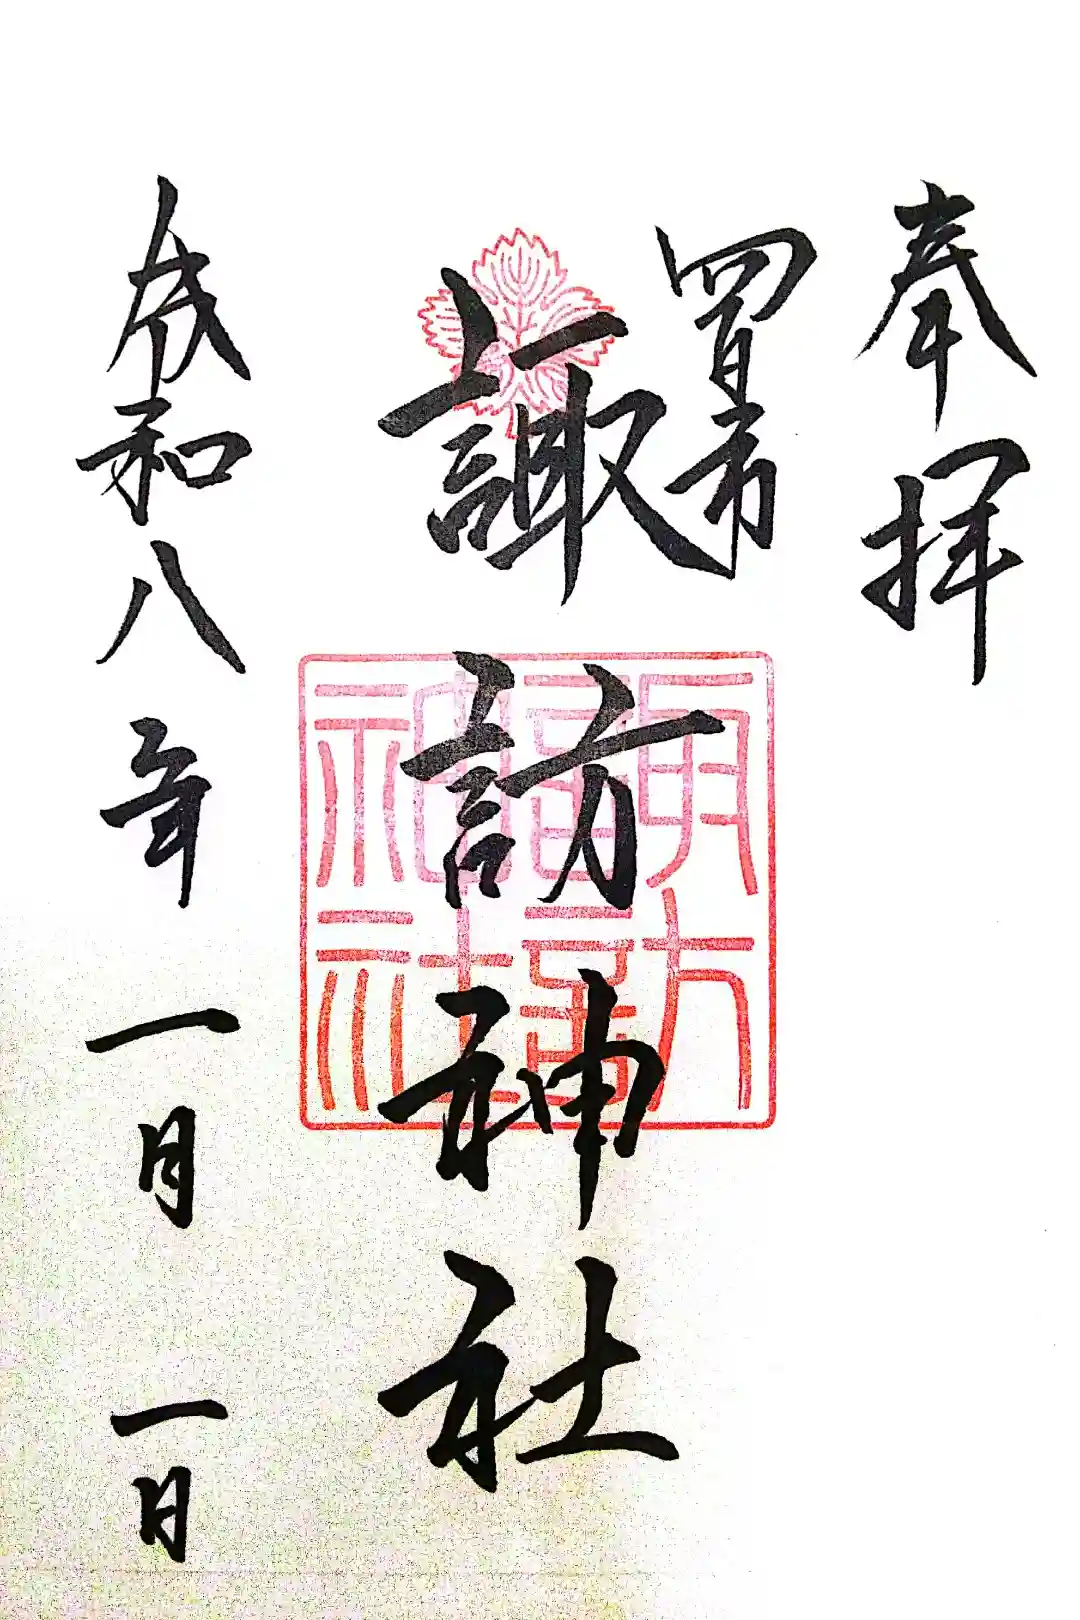 奉拝
四日市
諏訪神社
諏訪神社
令和八年一月一日